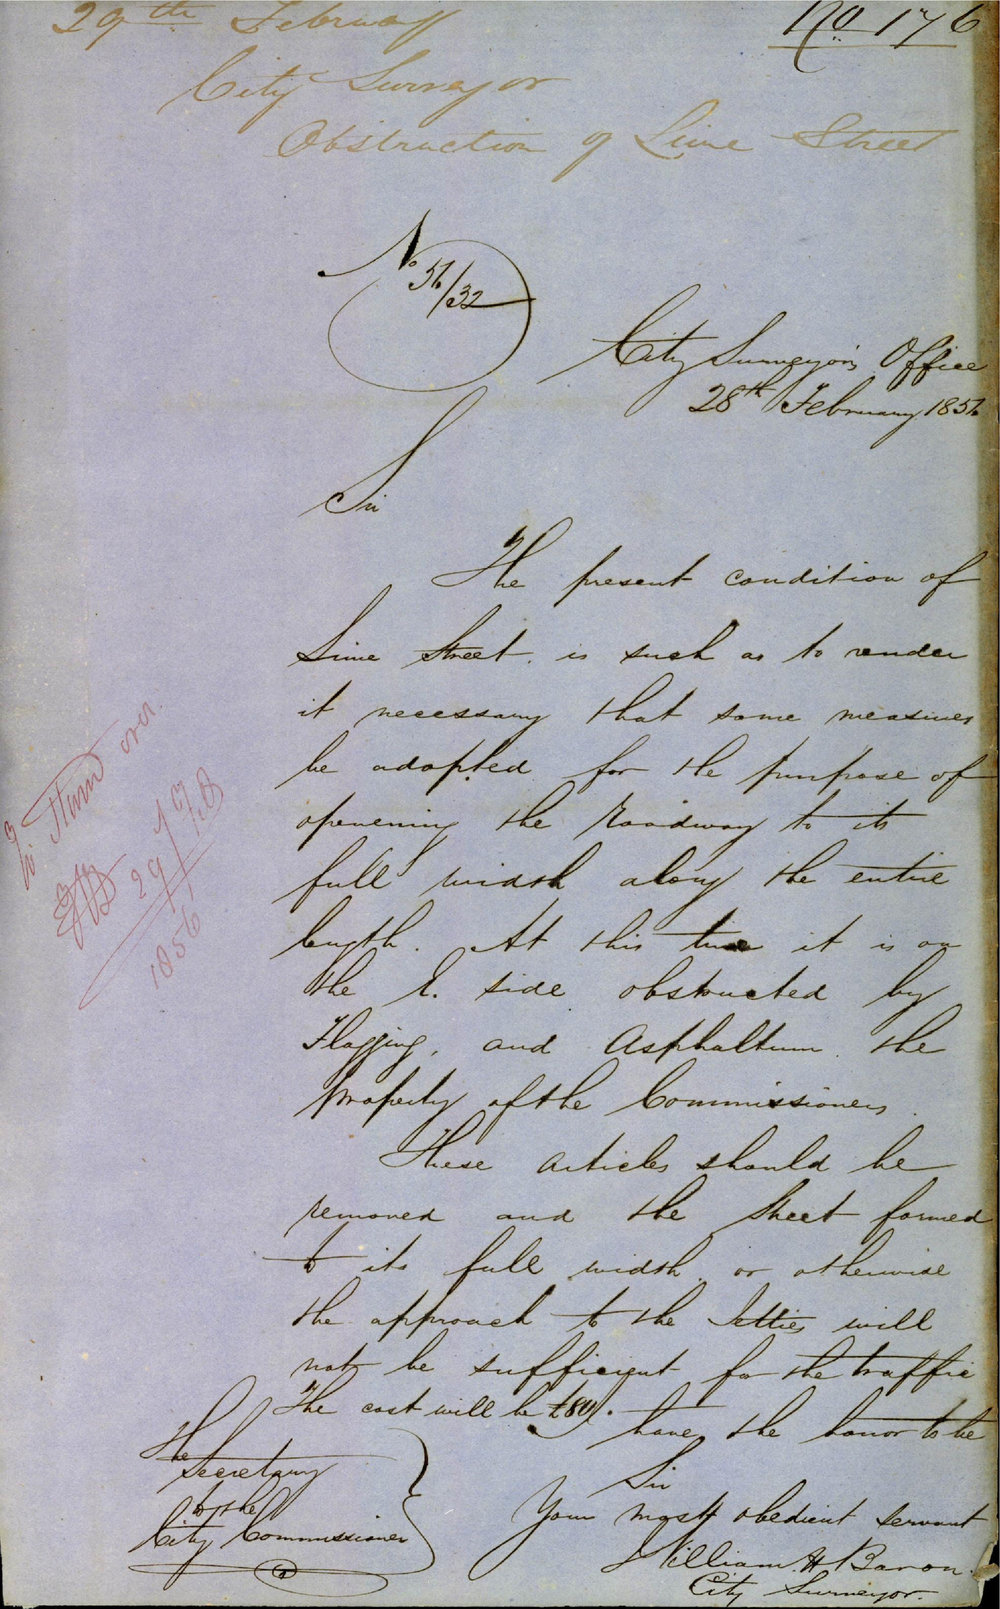 29th February
No 176
City Surveyor
Obstruction of Lime Street
No 56/32
City Surveyor's Office
28th February 1856
Sir
The present condition of
Lime Street is such as to render
it necessary that some measures
be adopted for the purpose of
openening the Roadway to its
full width along the entire
length. At this time it is on
the E. side obstructed by
Flagging, and Asphaltum the
property of the Commissioners.
These articles should be
removed and the street formed
to its full width or otherwise
the approach to the Jetties will
not be sufficient for the traffic
The cost will be £80.
I have the honor to be
Sir
Your most obedient servant
William H Baron.
City Surveyor.
The
Secretary
to the
City Commissioner
Turn over
29/Feb
1856